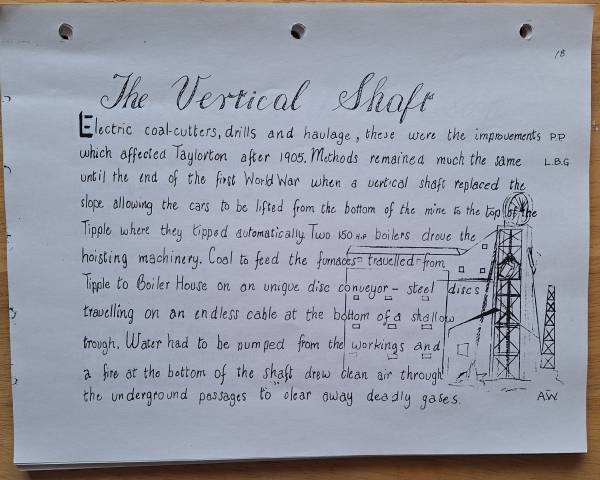 18
The Vertical Shaft
Electric coal-cutters, drills and haulage, these were the improvements P.P.
which affected Taylorton after 1905. Methods remained much the same L.B.G
until the end of the first World War when a vertical shaft replaced the
slope allowing the cars to be lifted from the bottom of the mine to the top of the
Tipple where they tipped automatically. Two 150 H.P. boilers drove the
hoisting machinery. Coal to feed the furnaces travelled from
Tipple to Boiler House on an unique disc conveyor - steel discs
travelling on an endless cable at the bottom of a shallow
trough. Water had to be pumped from the workings and
a fire at the bottom of the shaft drew clean air through
the underground passages to clear away deadly gases. A.W